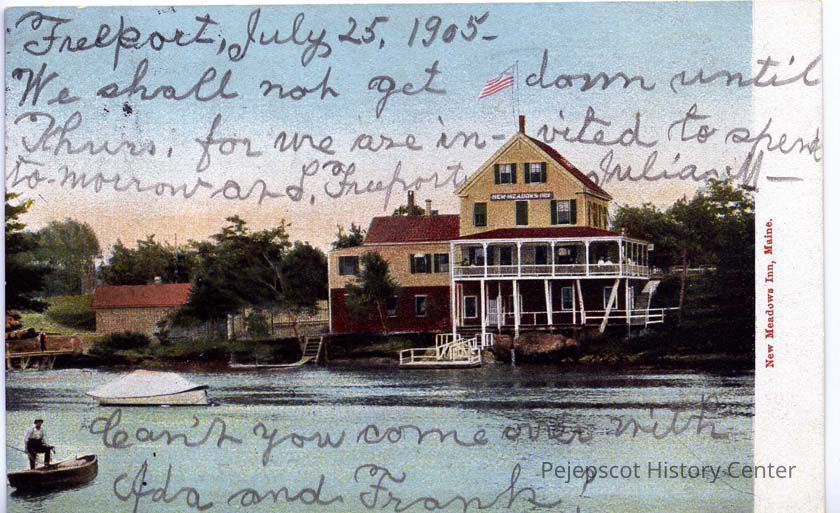 Freeport, July 25, 1905-
We shall not get down until
Thurs, for we are in-vited to spend
to-morrow at S. Freeport Julia M-
NEW MEADOWS INN
New Meadows Inn, Maine.
Can't you come over with
Ada and Frank!
Pejepscot History Center